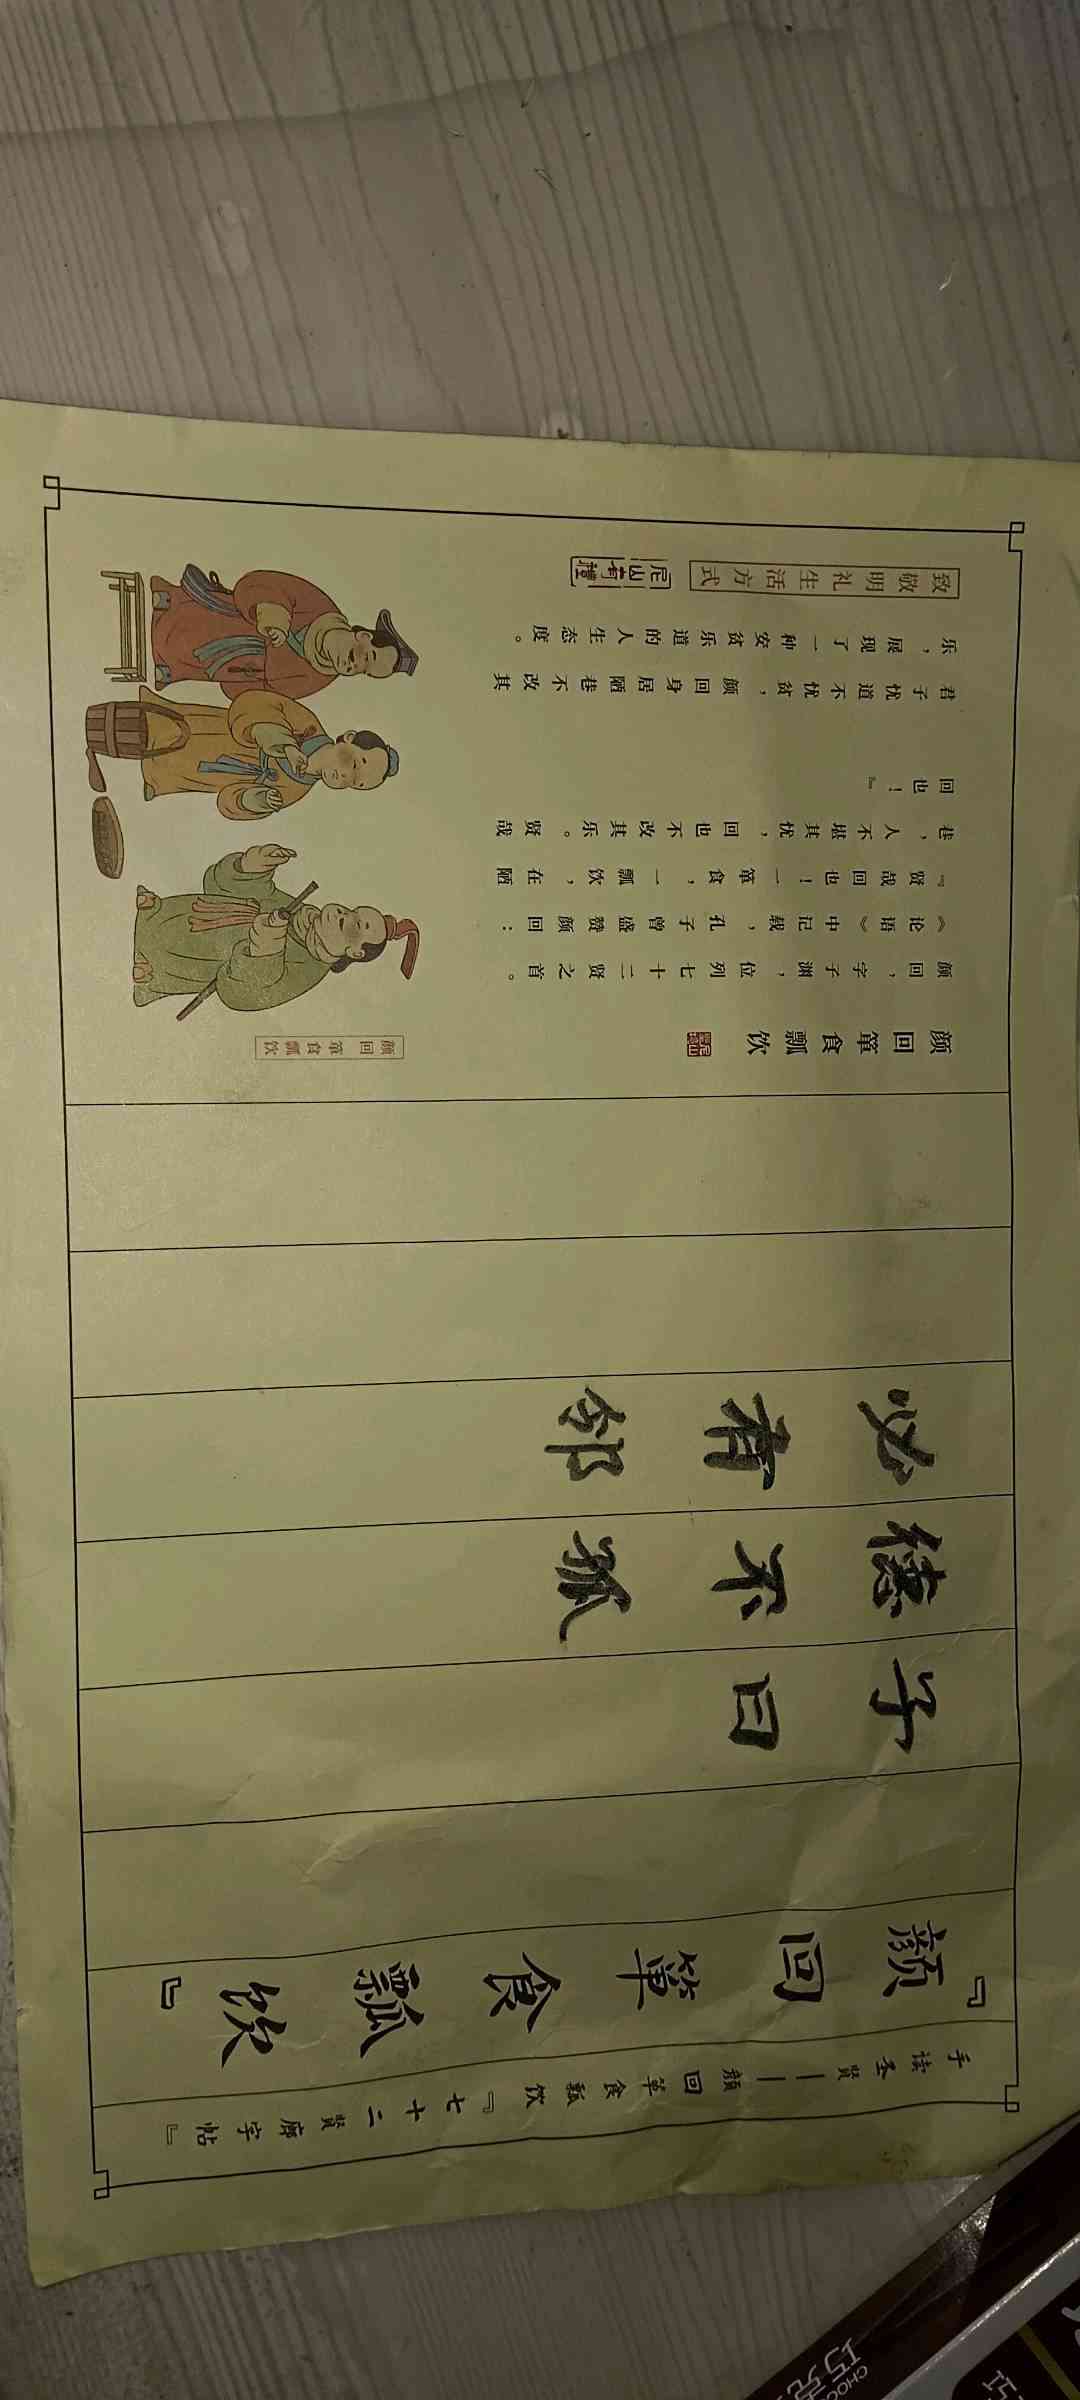 手读圣賢——顔回箪食瓢饮『七十二賢廊字帖』
『顔回箪食瓢饮』
子曰
德不孤
必有邻
颜回箪食瓢饮
颜回，字子渊，位列七十二贤之首。
《论语》中记载，孔子曾盛赞颜回：
『贤哉回也！一箪食，一瓢饮，在陋
巷，人不堪其忧，回也不改其乐。贤哉
回也！』
君子忧道不忧贫，颜回身居陋巷不改其
乐，展现了一种安贫乐道的人生态度。
致敬明礼生活方式
尼山有禮
颜回箪食瓢饮